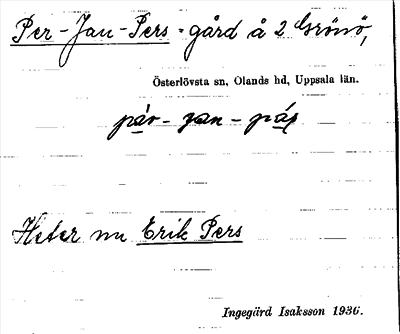 Per-Jan-Pers-gård å 2 Grönö,
Österlövsta sn, Olands hd, Uppsala län.
pär-jan-pä
Heter nu Erik Pers
Ingegärd Isaksson 1936.